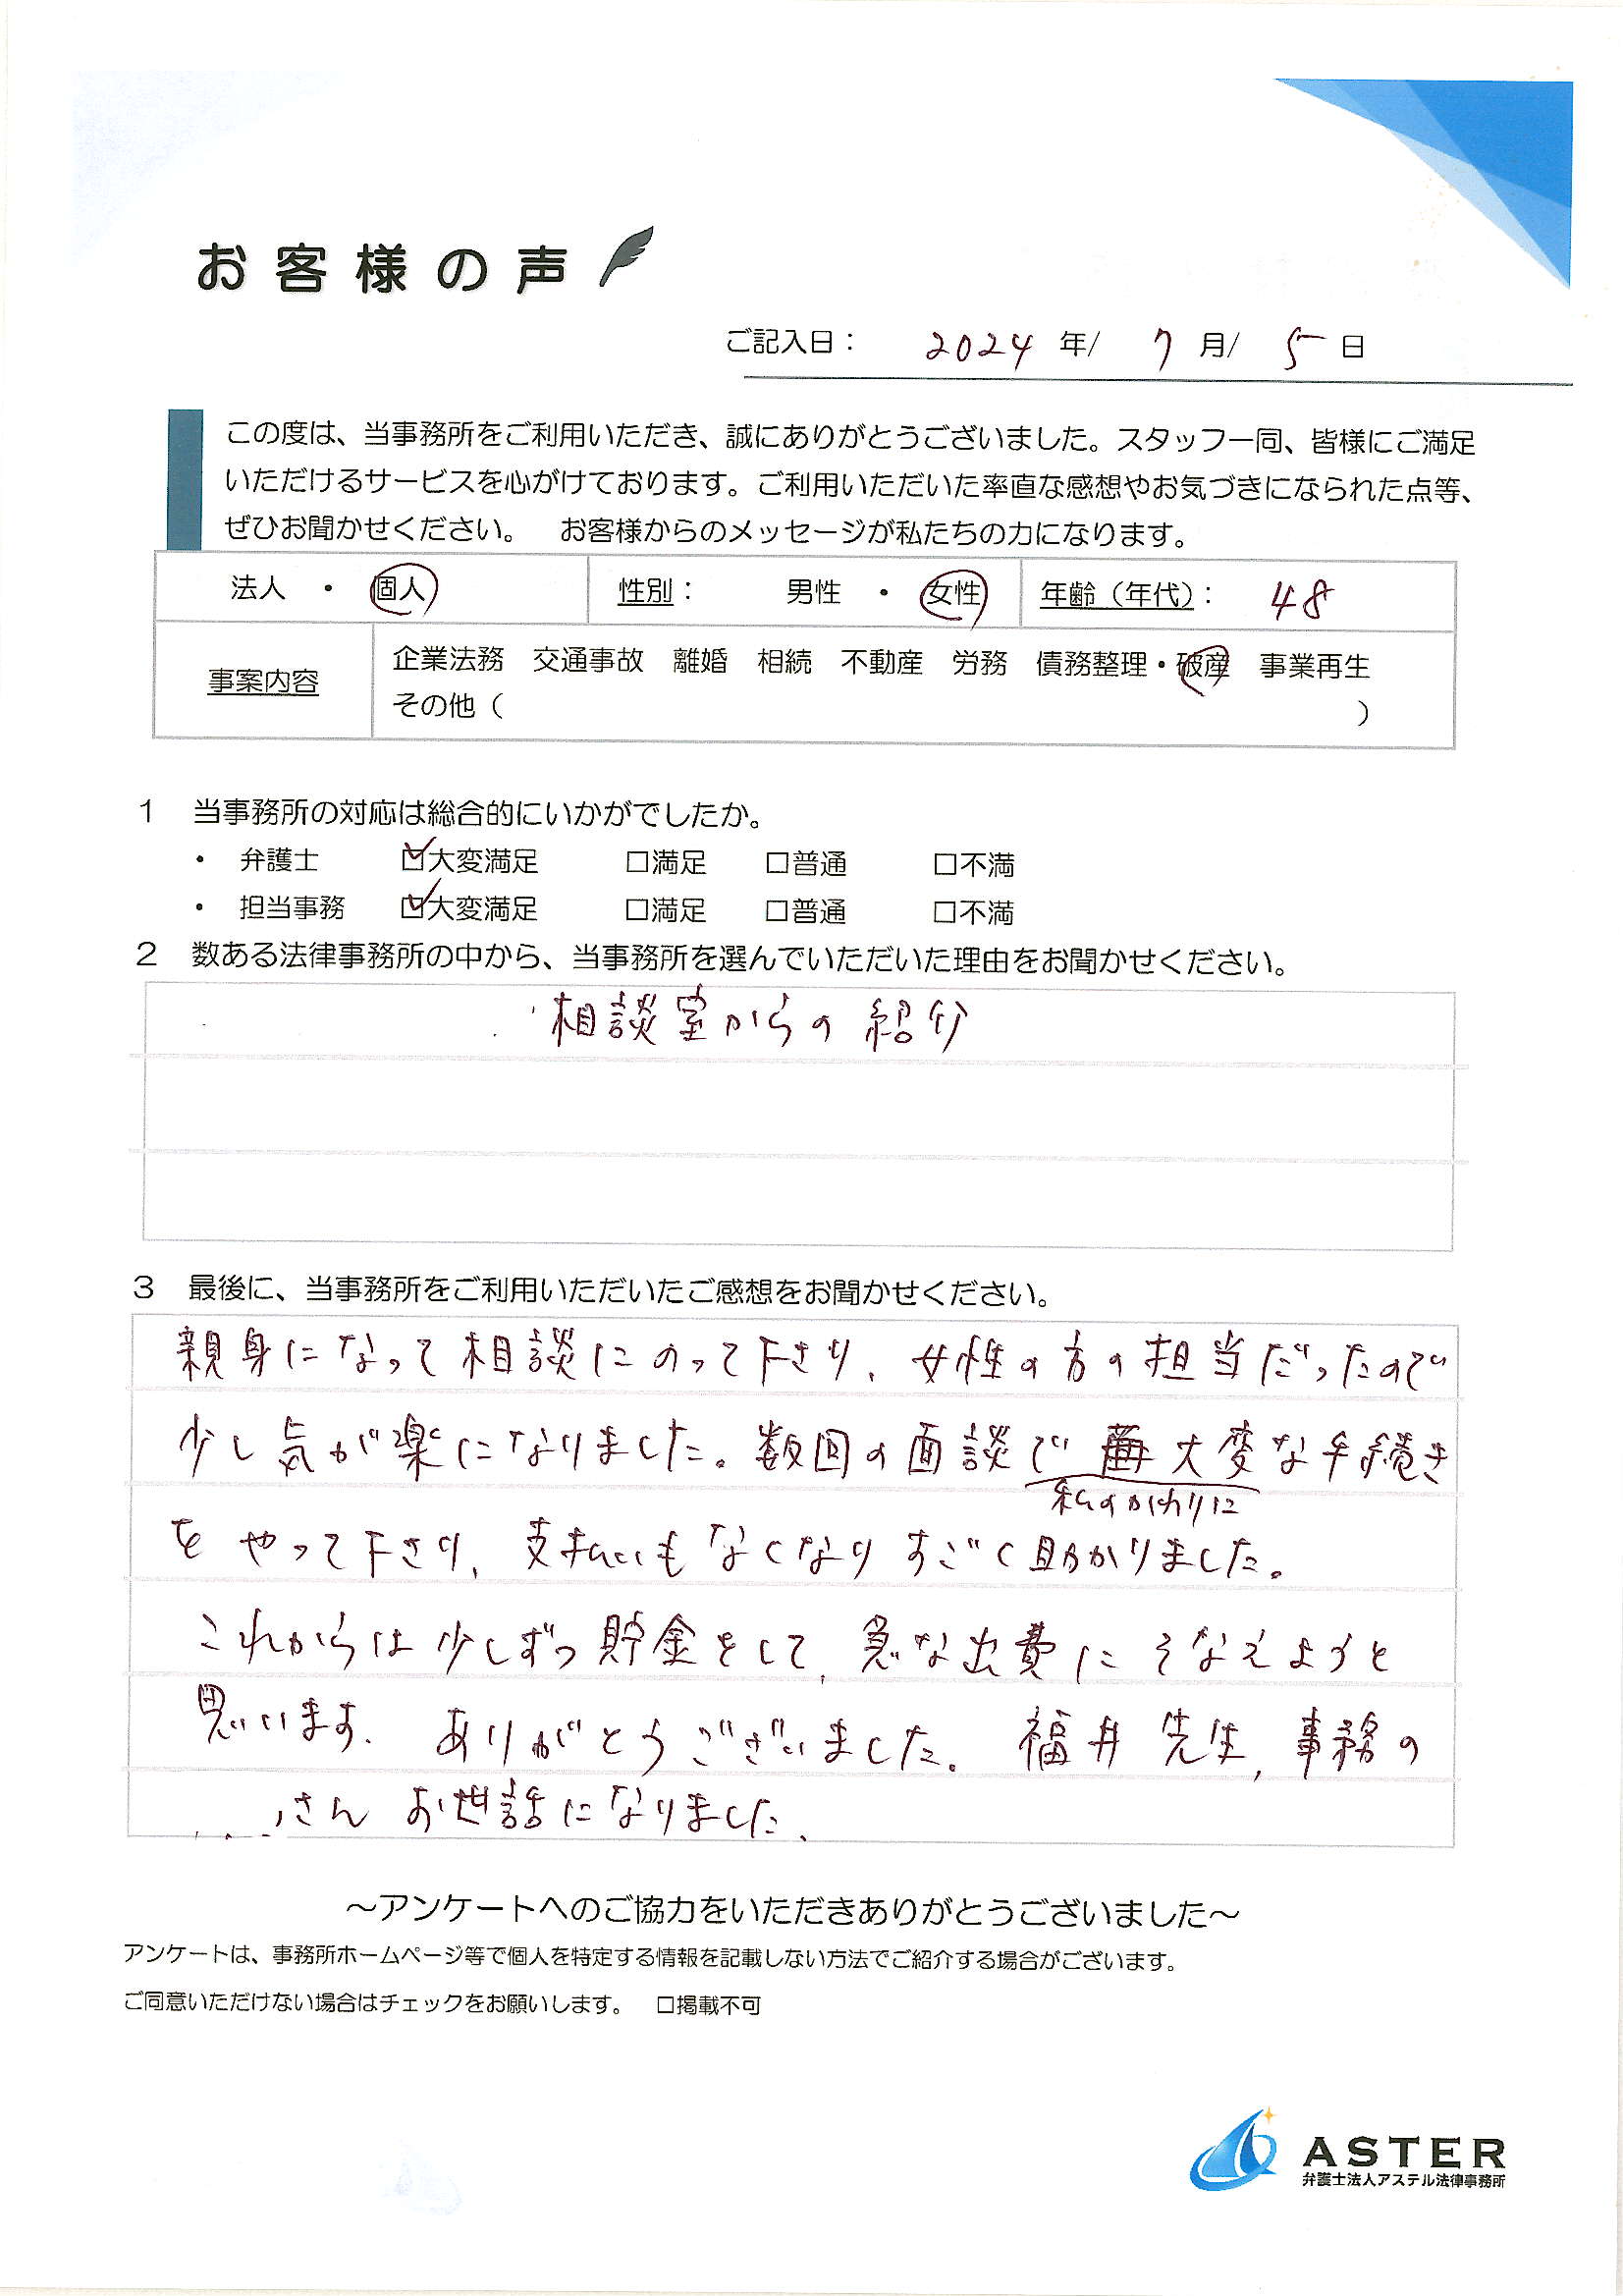 お客様の声
ご記入日： 2024 年/ 7 月/ 5 日
この度は、当事務所をご利用いただき、誠にありがとうございました。スタッフ一同、皆様にご満足
いただけるサービスを心がけております。ご利用いただいた率直な感想やお気づきになられた点等、
ぜひお聞かせください。　お客様からのメッセージが私たちの力になります。
法人 ・ 個人 性別： 男性 ・ 女性 年齢（年代）： 48
事案内容
企業法務 交通事故 離婚 相続 不動産 労務 債務整理・破産 事業再生
その他（ ）
1 当事務所の対応は総合的にいかがでしたか。
・ 弁護士 ☑大変満足 □満足 □普通 □不満
・ 担当事務 ☑大変満足 □満足 □普通 □不満
2 数ある法律事務所の中から、当事務所を選んでいただいた理由をお聞かせください。
相談室からの紹介
3 最後に、当事務所をご利用いただいたご感想をお聞かせください。
親身になって相談にのって下さり、女性の方の担当だったので
少し気が楽になりました。数回の面談で 大変な手続き
私のかわりに
をやって下さり、支払いもなくなりすごく助かりました。
これからは少しずつ貯金をして、急な出費にそなえようと
思います。ありがとうございました。福井先生、事務の
さんお世話になりました。
～アンケートへのご協力をいただきありがとうございました～
アンケートは、事務所ホームページ等で個人を特定する情報を記載しない方法でご紹介する場合がございます。
ご同意いただけない場合はチェックをお願いします。 □掲載不可
ASTER
弁護士法人アステル法律事務所